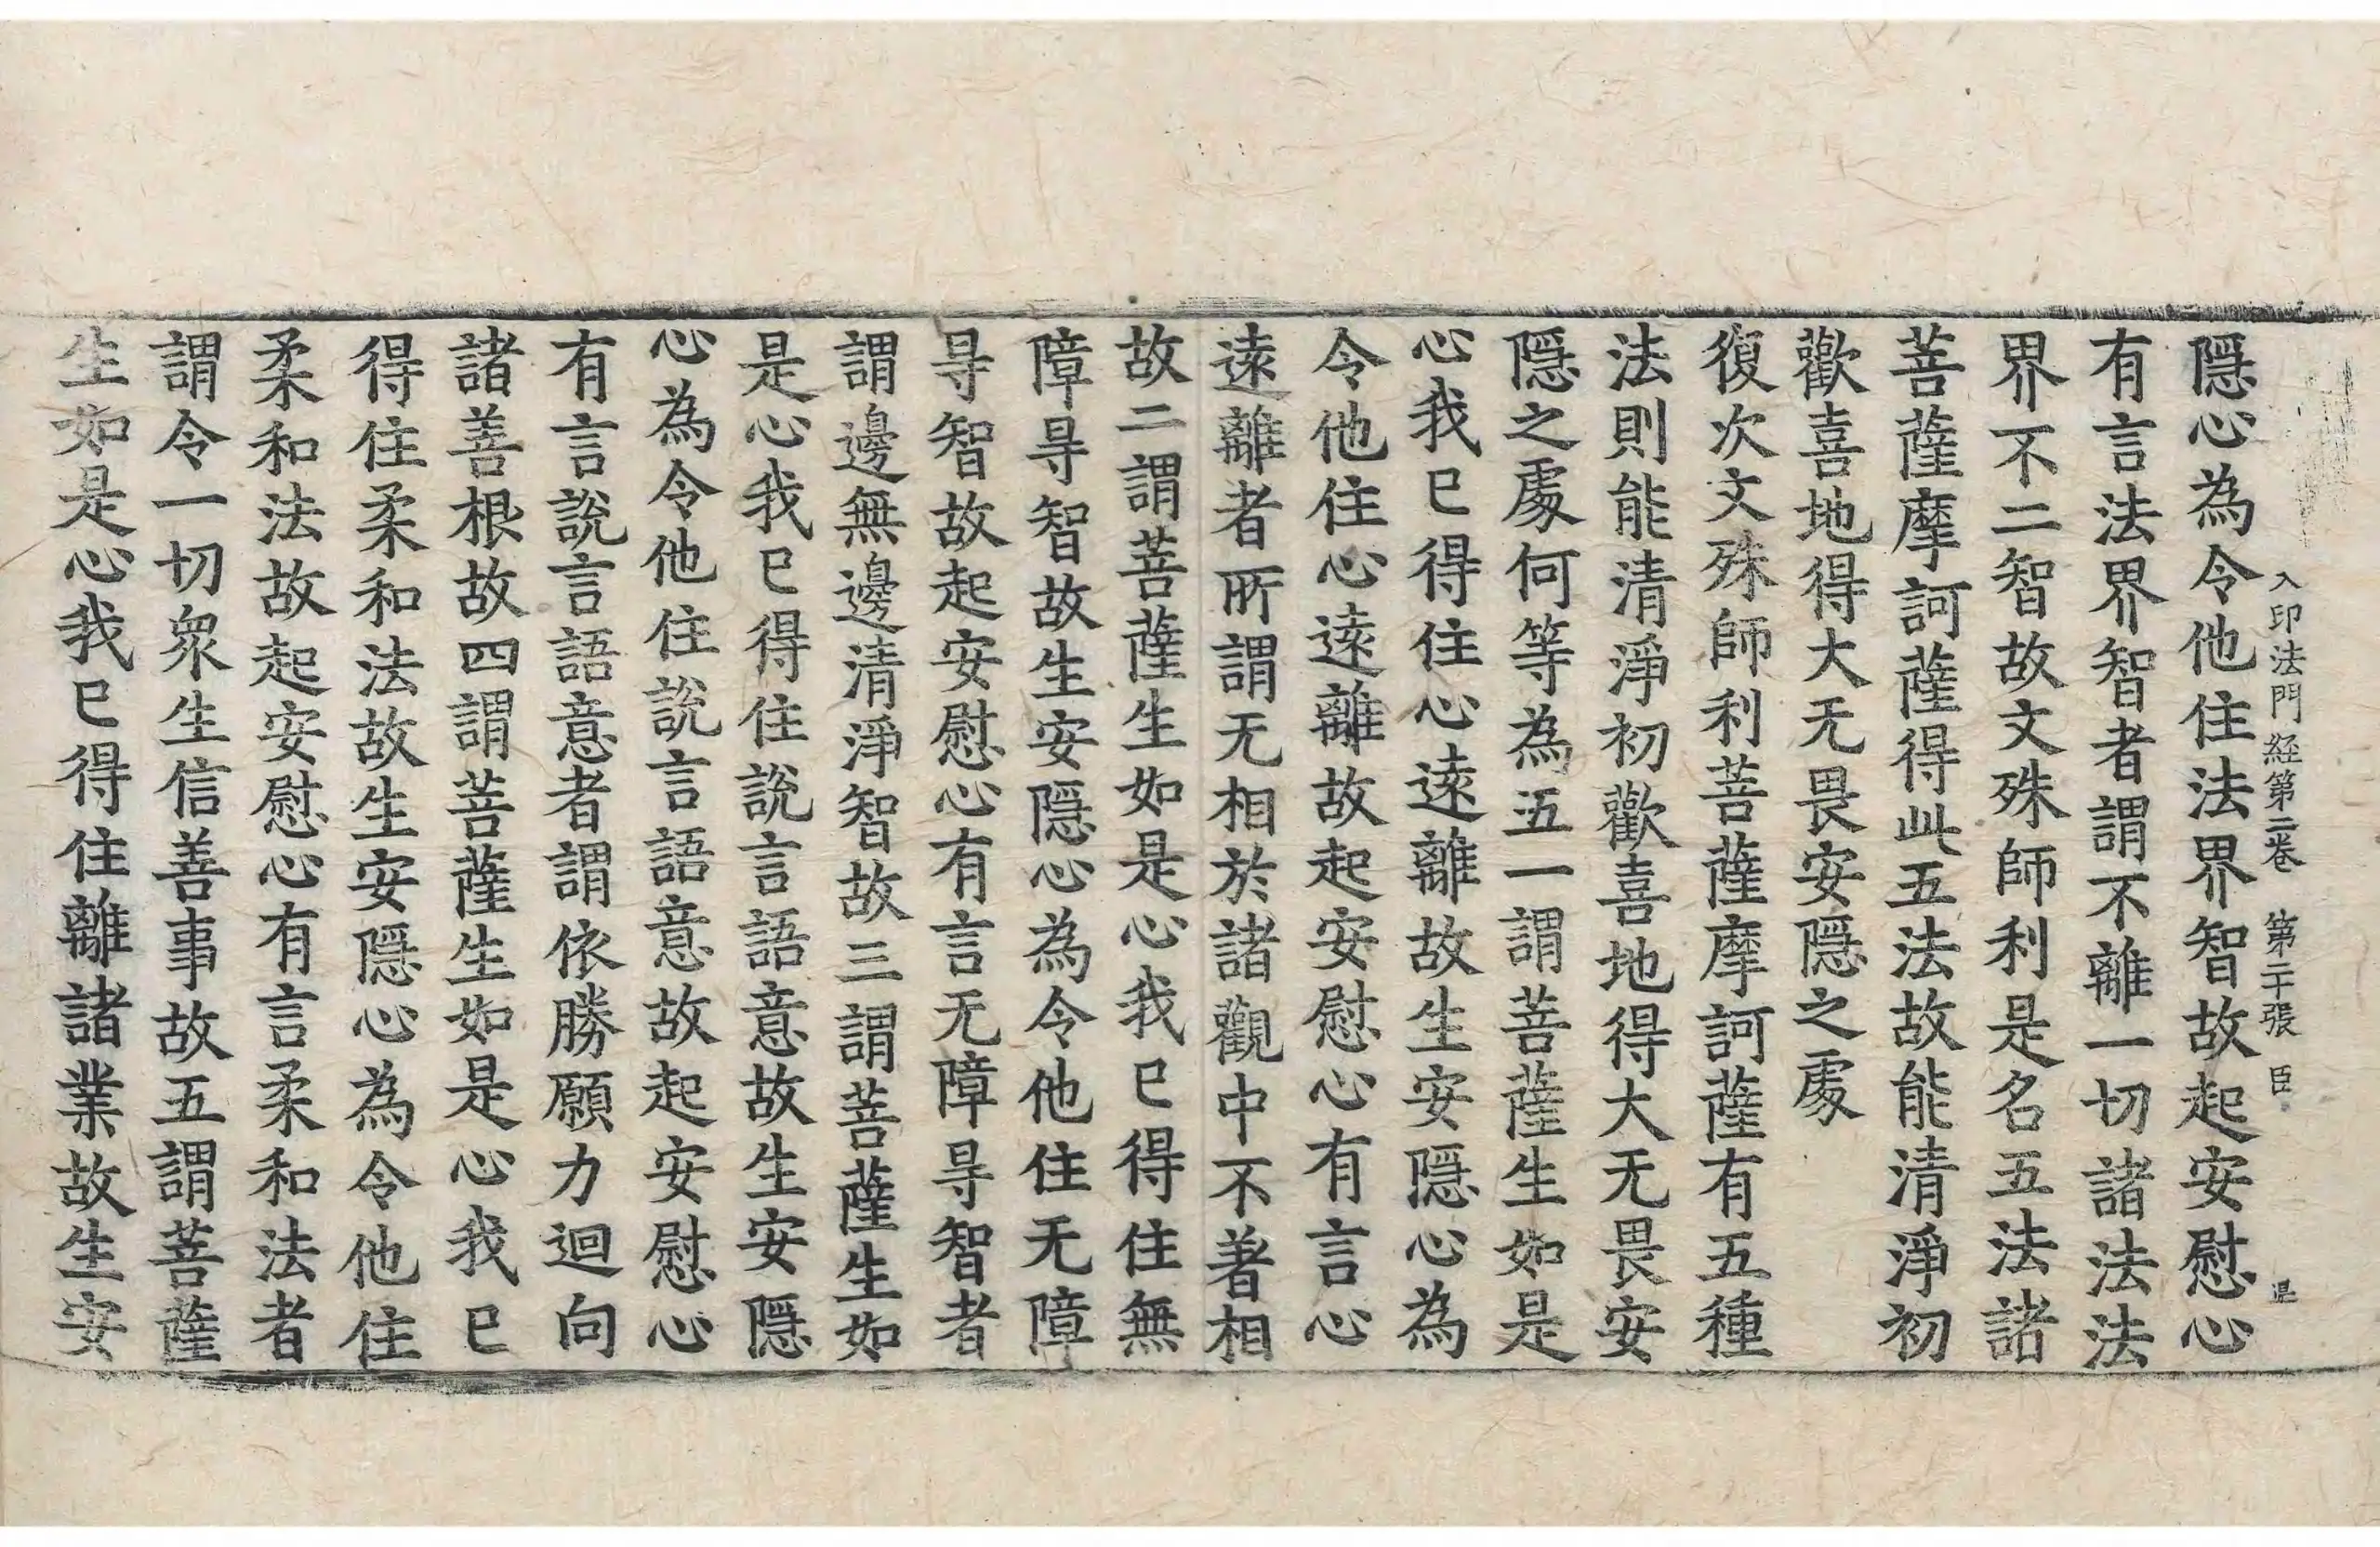 入印法門経第二卷 第二十張 臣
隱心為令他住法界智故起安慰心
有言法界智者謂不離一切諸法法
界不二智故文殊師利是名五法諸
菩薩摩訶薩得此五法故能清淨初
歡喜地得大无畏安隱之處
復次文殊師利菩薩摩訶薩有五種
法則能清淨初歡喜地得大无畏安
隱之處何等為五一謂菩薩生如是
心我已得住心遠離故生安隱心為
令他住心遠離故起安慰心有言心
遠離者所謂无相於諸觀中不著相
故二謂菩薩生如是心我已得住無
障㝵智故生安隱心為令他住无障
㝵智故起安慰心有言无障㝵智者
謂邊無邊清淨智故三謂菩薩生如
是心我已得住說言語意故生安隱
心為令他住說言語意故起安慰心
有言說言語意者謂依勝願力迴向
諸善根故四謂菩薩生如是心我已
得住柔和法故生安隱心為令他住
柔和法故起安慰心有言柔和法者
謂令一切衆生信善事故五謂菩薩
生如是心我已得住離諸業故生安